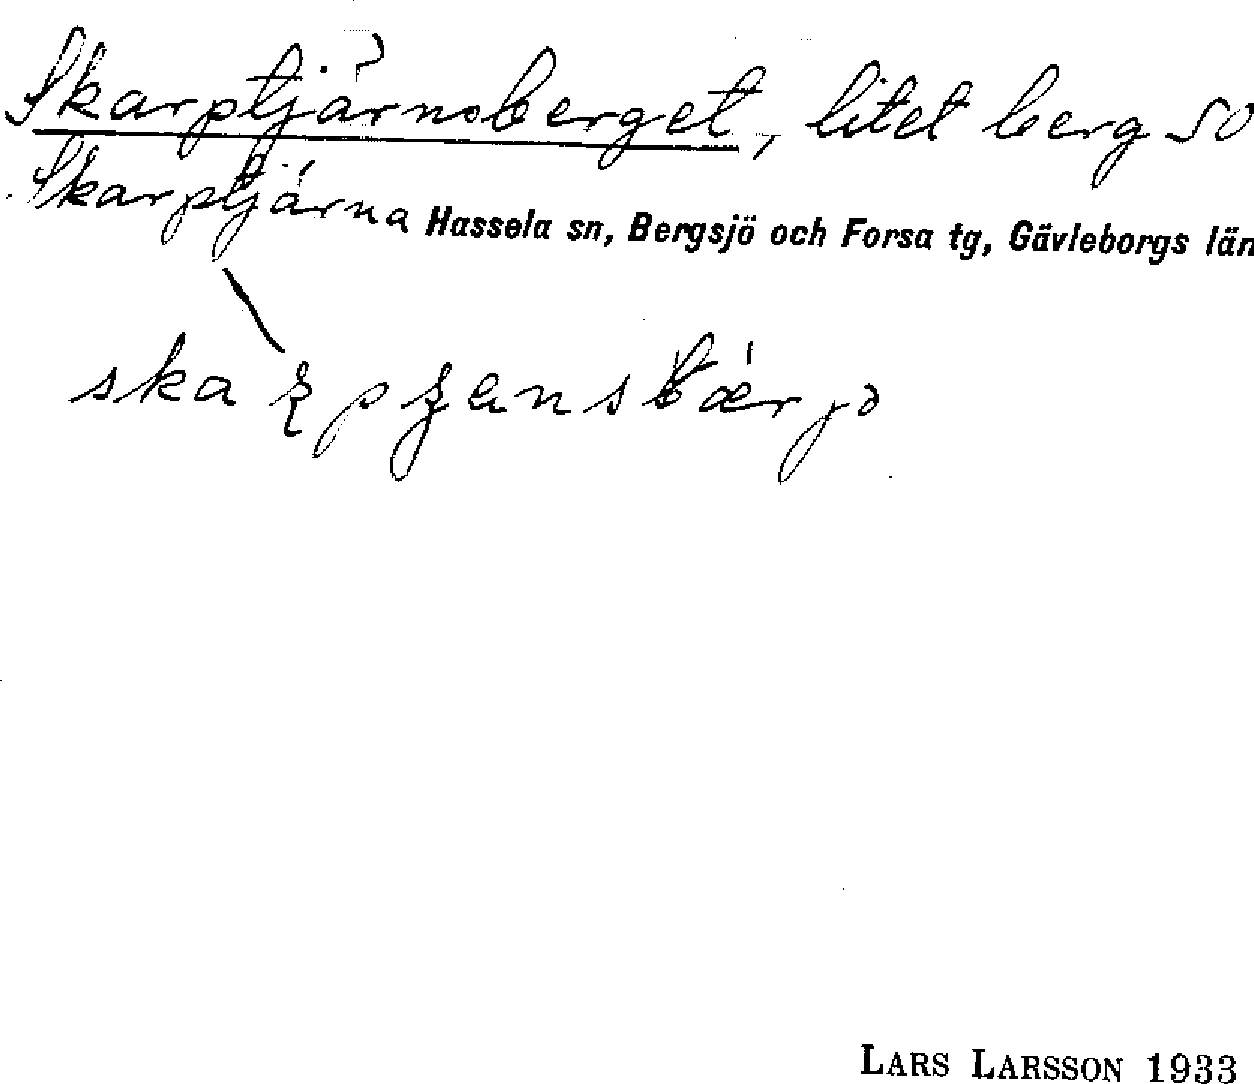 Skarptjärnsberget, litet berg SO
Skarptjärna Hassela sn, Bergsjö och Forsa tg, Gävleborgs län
LARS LARSSON 1933